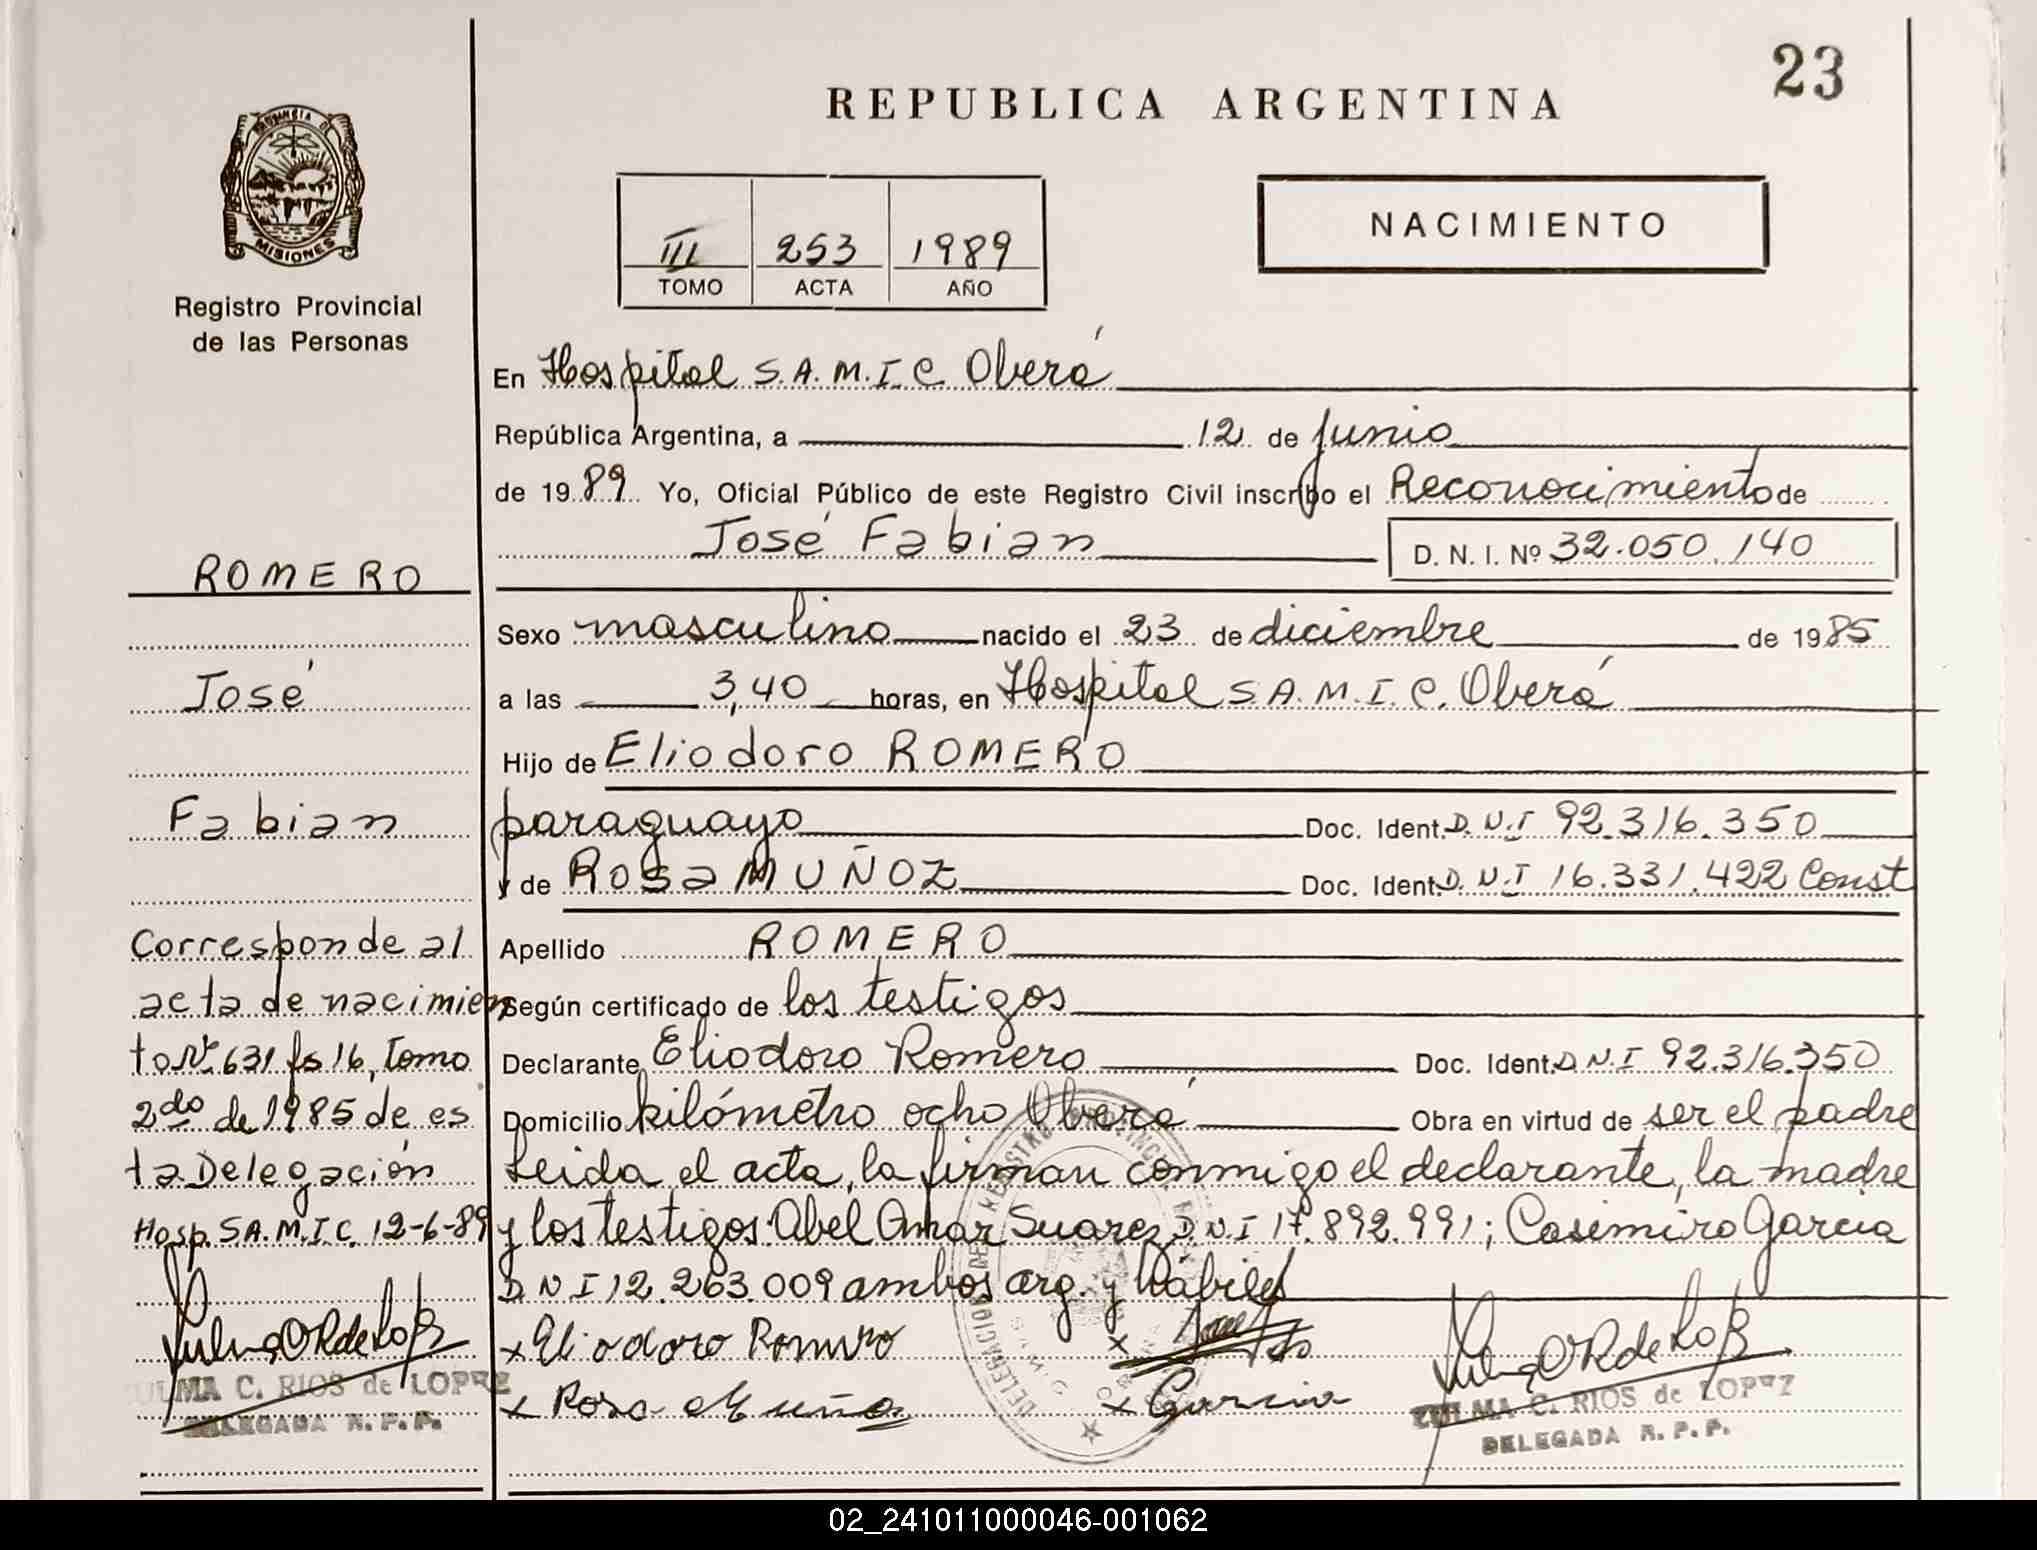 23
REPUBLICA ARGENTINA
PROVINCIA DE
MISIONES
Registro Provincial
de las Personas
III 253 1989
TOMO ACTA AÑO
NACIMIENTO
En Hospital S.A.M.I.C Oberá
República Argentina, a 12 de junio
de 1989 Yo, Oficial Público de este Registro Civil inscribo el Reconocimiento de
José Fabian D. N. I. Nº 32.050.140
Sexo masculino nacido el 23 de diciembre de 1985
a las 3,40 horas, en Hospital S.A.M.I.C. Oberá
Hijo de Eliodoro ROMERO
paraguayo Doc. Ident. D.N.I 92.316.350
y de Rosa MUÑOZ Doc. Ident. D.N.I 16.331.422 Const
Apellido ROMERO
Según certificado de los testigos
Declarante Eliodoro Romero Doc. Ident. D.N.I 92.316.350
Domicilio kilómetro ocho Oberá Obra en virtud de ser el padre
Leida el acta, la firman conmigo el declarante, la madre
y los testigos Abel Omar Suarez D.N.I 17.892.991; Casimiro Garcia
D.N.I 12.263.009 ambos arg. y hábiles
x Eliodoro Romero x
x Rosa Muño x Garcia
ZULMA C. RIOS de LOPEZ
DELEGADA R. P. P.
ROMERO
José
Fabian
Corresponde al
acta de nacimien
to Nº 631 fs 16, tomo
2do de 1985 de es
ta Delegación
Hosp. S.A.M.I.C. 12-6-89
ZULMA C. RIOS de LOPEZ
DELEGADA R. P. P.
02_241011000046-001062